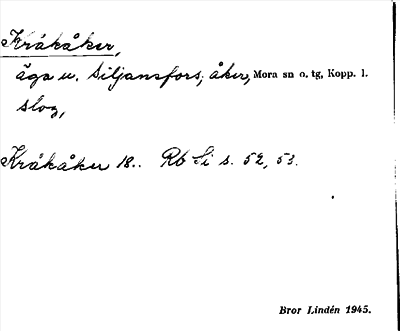 Kråkåker,
äga u. Siljansfors; åker, Mora sn o. tg, Kopp. l.
slog,
Kråkåker 18.. Rb Si s. 52, 53.
Bror Lindén 1945.